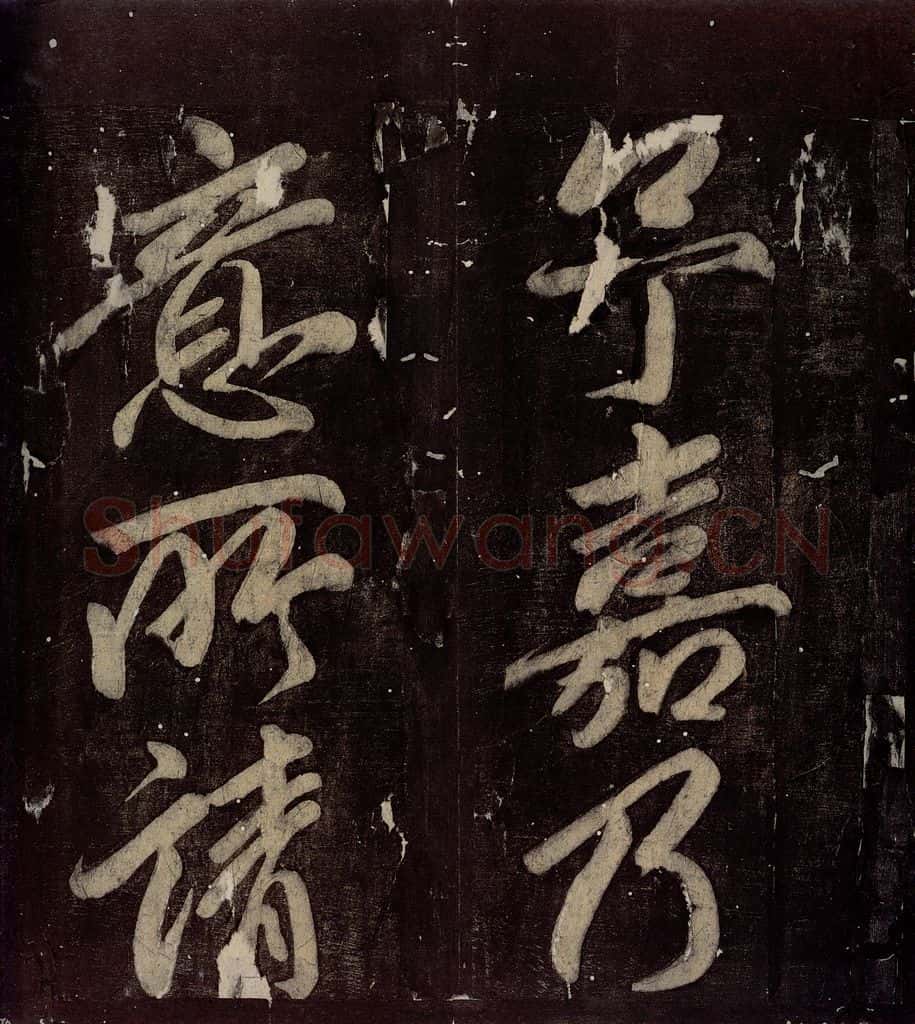 嘉乃
意所請
Shufawang.CN